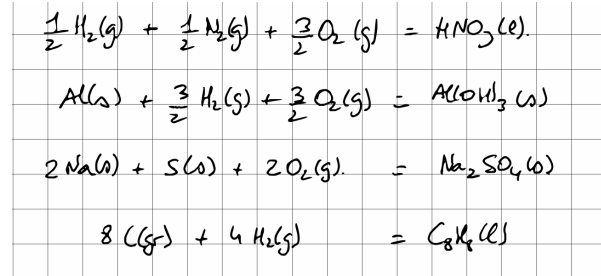 1/2 H₂(g) + 1/2 N₂(g) + 3/2 O₂(g) = HNO₃(l).
Al(s) + 3/2 H₂(g) + 3/2 O₂(g) = Al(OH)₃(s)
2 Na(s) + S(s) + 2 O₂(g). = Na₂SO₄(s)
8 C(gr) + 4 H₂(g) = C₈H₈(l)